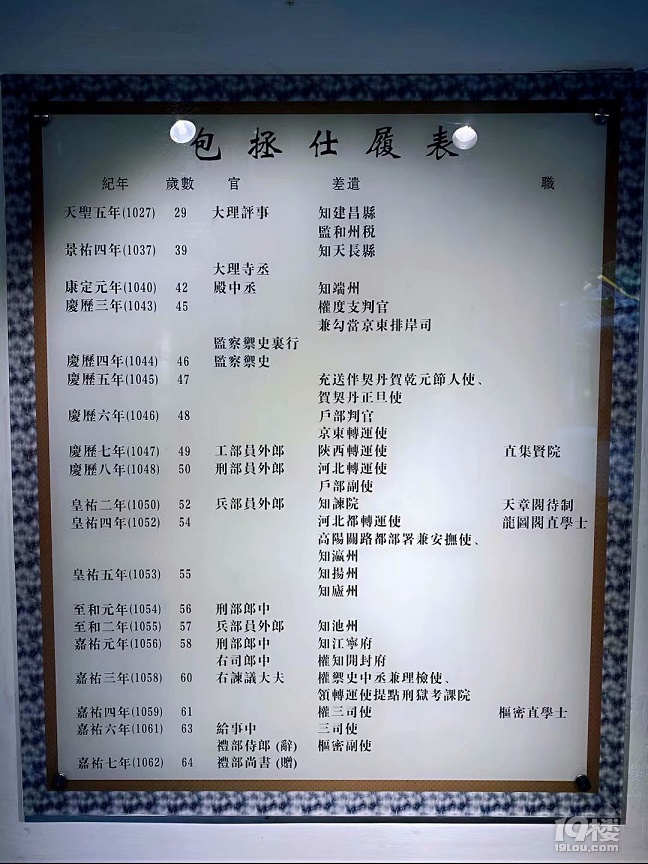 包拯仕履表
紀年 歲數 官 差遣 職
天聖五年(1027) 29 大理評事 知建昌縣
監和州税
景祐四年(1037) 39 知天長縣
大理寺丞
康定元年(1040) 42 殿中丞 知端州
慶歷三年(1043) 45 權度支判官
兼勾當京東排岸司
監察禦史裏行
慶歷四年(1044) 46 監察禦史
慶歷五年(1045) 47 充送伴契丹賀乾元節人使、
賀契丹正旦使
慶歷六年(1046) 48 戶部判官
京東轉運使
慶歷七年(1047) 49 工部員外郎 陝西轉運使 直集賢院
慶歷八年(1048) 50 刑部員外郎 河北轉運使
戶部副使
皇祐二年(1050) 52 兵部員外郎 知諫院 天章閣待制
皇祐四年(1052) 54 河北都轉運使 龍圖閣直學士
高陽關路都部署兼安撫使、
知瀛州
皇祐五年(1053) 55 知揚州
知廬州
至和元年(1054) 56 刑部郎中
至和二年(1055) 57 兵部員外郎 知池州
嘉祐元年(1056) 58 刑部郎中 知江寧府
右司郎中 權知開封府
嘉祐三年(1058) 60 右諫議大夫 權禦史中丞兼理檢使、
領轉運使提點刑獄考課院
嘉祐四年(1059) 61 權三司使 樞密直學士
嘉祐六年(1061) 63 給事中 三司使
禮部侍郎(辭) 樞密副使
嘉祐七年(1062) 64 禮部尚書(贈)
19楼
19lou.com